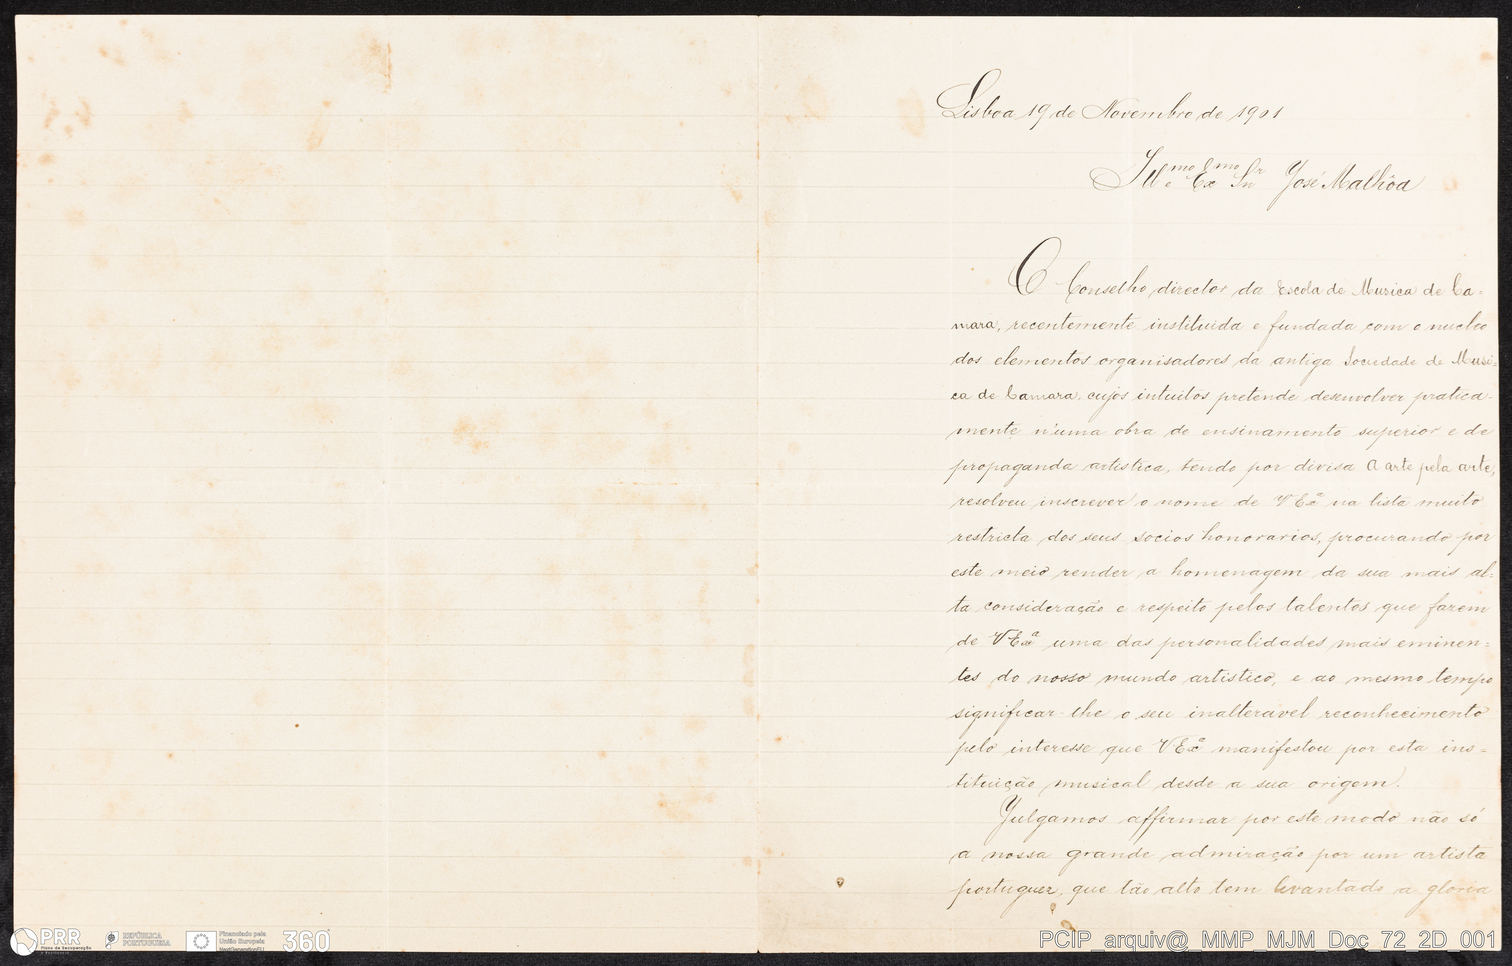 Lisboa 19 de Novembro de 1901
Ill.mo e Ex.mo Snr José Malhôa
O Conselho director da Escola de Musica de Ca=
mara, recentemente instituida e fundada com o nucleo
dos elementos organisadores da antiga Sociedade de Musi=
ca de Camara, cujos intuitos pretende desenvolver pratica-
mente n'uma obra de ensinamento superior e de
propaganda artistica, tendo por divisa A arte pela arte,
resolveu inscrever o nome de V Exª na lista muito
restricta dos seus socios honorarios, procurando por
este meio render a homenagem da sua mais al-
ta consideração e respeito pelos talentos que fazem
de V Exª uma das personalidades mais eminen=
tes do nosso mundo artistico, e ao mesmo tempo
significar-lhe o seu inalteravel reconhecimento
pelo interesse que V Exª manifestou por esta ins=
tituição musical desde a sua origem.
Julgamos affirmar por este modo não só
a nossa grande admiração por um artista
portuguez, que tão alto tem levantado a gloria
PRR
Plano de Recuperação
e Resiliência
REPÚBLICA
PORTUGUESA
Financiado pela
União Europeia
NextGenerationEU
360
PCIP_arquiv@_MMP_MJM_Doc_72_2D_001